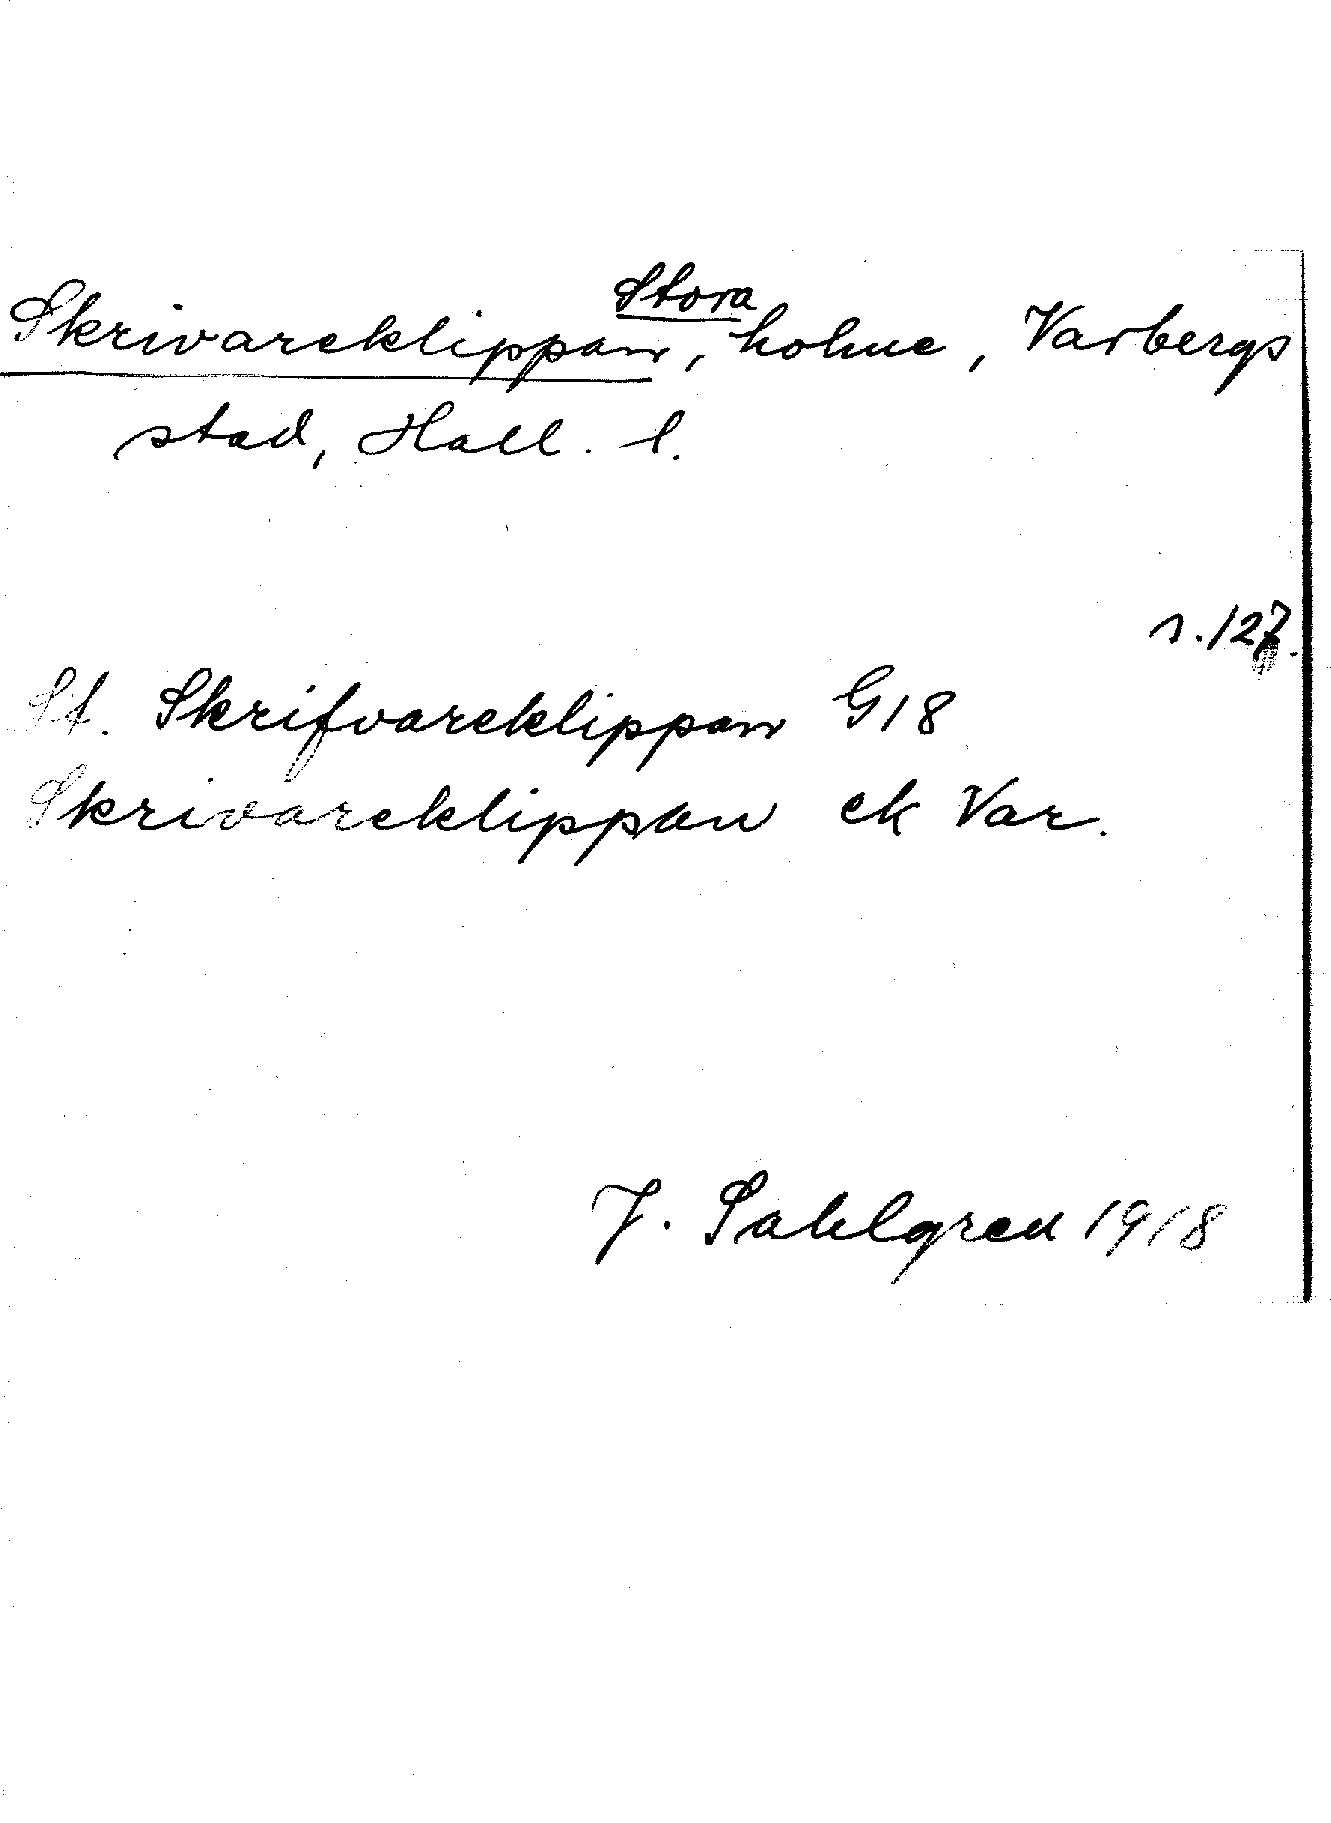 Skrivareklippan, Stora holme, Varbergs
stad, Hall. l.
s. 127.
St. Skrifvareklippan G18
Skrivareklippan ek Var.
J. Sahlgren 1918